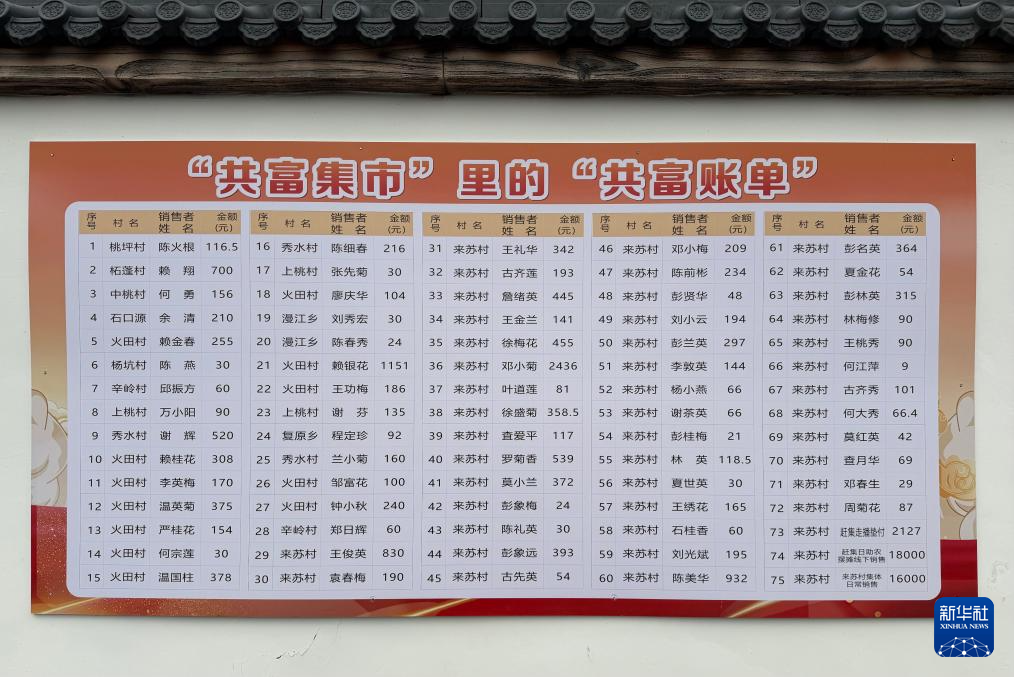 “共富集市”里的“共富账单”
序号 村名 销售者姓名 金额(元)
1 桃坪村 陈火根 116.5
2 柘蓬村 赖翔 700
3 中桃村 何勇 156
4 石口源 余清 210
5 火田村 赖金春 255
6 杨坑村 陈燕 30
7 辛岭村 邱振方 60
8 上桃村 万小阳 90
9 秀水村 谢辉 520
10 火田村 赖桂花 308
11 火田村 李英梅 170
12 火田村 温英菊 375
13 火田村 严桂花 154
14 火田村 何宗莲 30
15 火田村 温国柱 378
序号 村名 销售者姓名 金额(元)
16 秀水村 陈细春 216
17 上桃村 张先菊 30
18 火田村 廖庆华 104
19 漫江乡 刘秀宏 30
20 漫江乡 陈春秀 24
21 火田村 赖银花 1151
22 火田村 王功梅 186
23 上桃村 谢芬 135
24 复原乡 程定珍 92
25 秀水村 兰小菊 160
26 火田村 邹富花 100
27 火田村 钟小秋 240
28 辛岭村 郑日辉 60
29 来苏村 王俊英 830
30 来苏村 袁春梅 190
序号 村名 销售者姓名 金额(元)
31 来苏村 王礼华 342
32 来苏村 古齐莲 193
33 来苏村 詹绪英 445
34 来苏村 王金兰 141
35 来苏村 徐梅花 455
36 来苏村 邓小菊 2436
37 来苏村 叶道莲 81
38 来苏村 徐盛菊 358.5
39 来苏村 查爱平 117
40 来苏村 罗菊香 539
41 来苏村 莫小兰 372
42 来苏村 彭象梅 24
43 来苏村 陈礼英 30
44 来苏村 彭象远 393
45 来苏村 古先英 54
序号 村名 销售者姓名 金额(元)
46 来苏村 邓小梅 209
47 来苏村 陈前彬 234
48 来苏村 彭贤华 48
49 来苏村 刘小云 194
50 来苏村 彭兰英 297
51 来苏村 李敦英 144
52 来苏村 杨小燕 66
53 来苏村 谢茶英 66
54 来苏村 彭桂梅 21
55 来苏村 林英 118.5
56 来苏村 夏世英 30
57 来苏村 王绣花 165
58 来苏村 石桂香 60
59 来苏村 刘光斌 195
60 来苏村 陈美华 932
序号 村名 销售者姓名 金额(元)
61 来苏村 彭名英 364
62 来苏村 夏金花 54
63 来苏村 彭林英 315
64 来苏村 林梅修 90
65 来苏村 王桃秀 90
66 来苏村 何江萍 9
67 来苏村 古齐秀 101
68 来苏村 何大秀 66.4
69 来苏村 莫红英 42
70 来苏村 查月华 69
71 来苏村 邓春生 29
72 来苏村 周菊花 87
73 来苏村 赶集走播垫付 2127
74 来苏村 赶集日助农摆摊线下销售 18000
75 来苏村 来苏村集体日常销售 16000
新华社
XINHUA NEWS